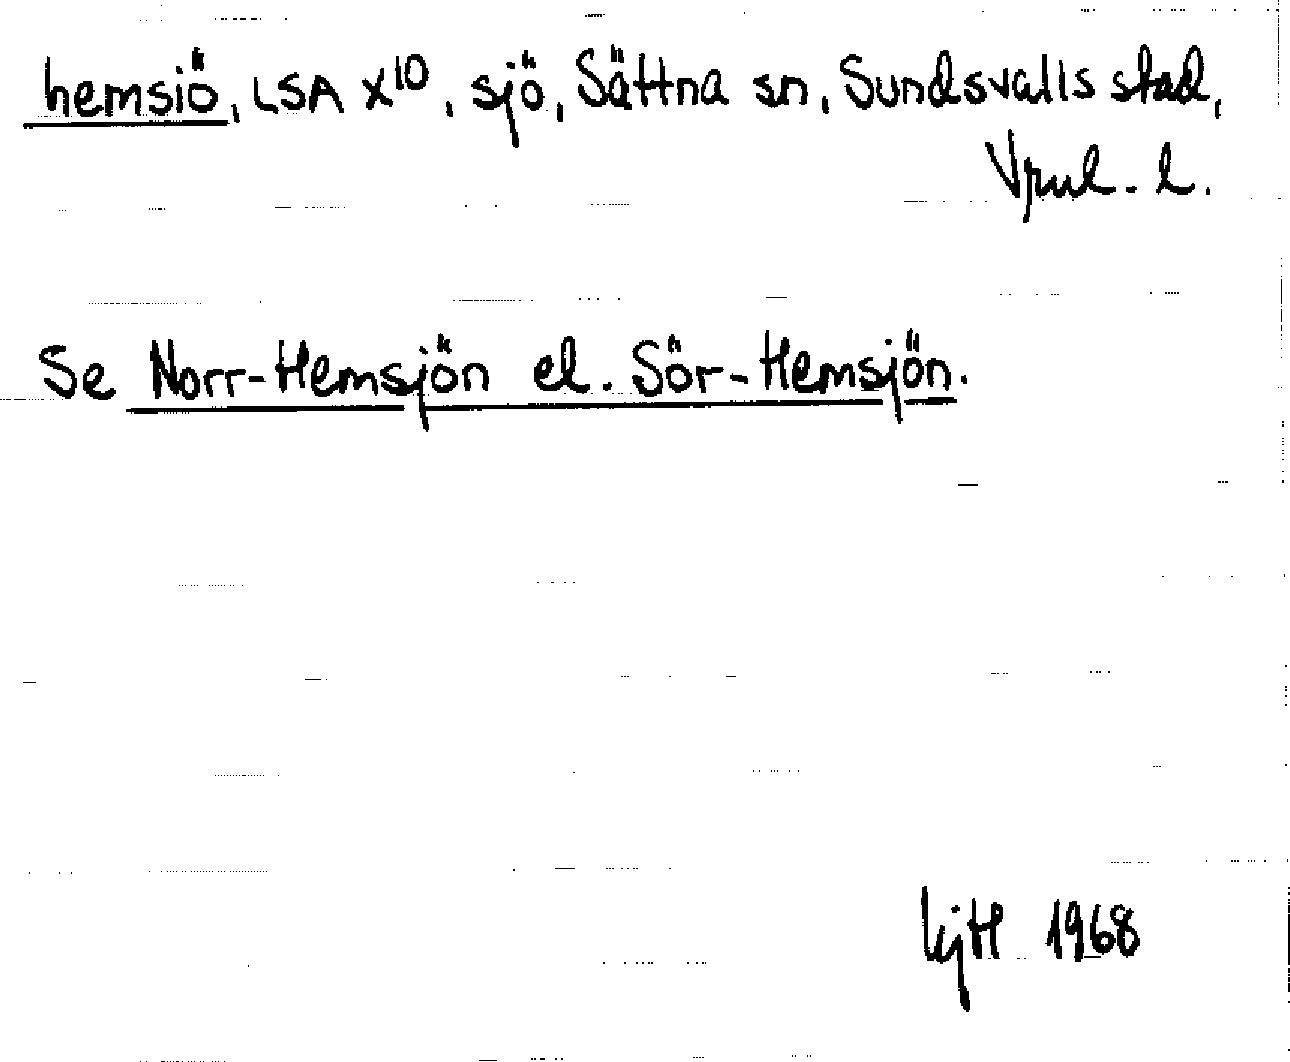 hemsiö, LSA X10, sjö, Sättna sn, Sundsvalls stad,
Vrnl. l.
Se Norr-Hemsjön el. Sör-Hemsjön.
1968